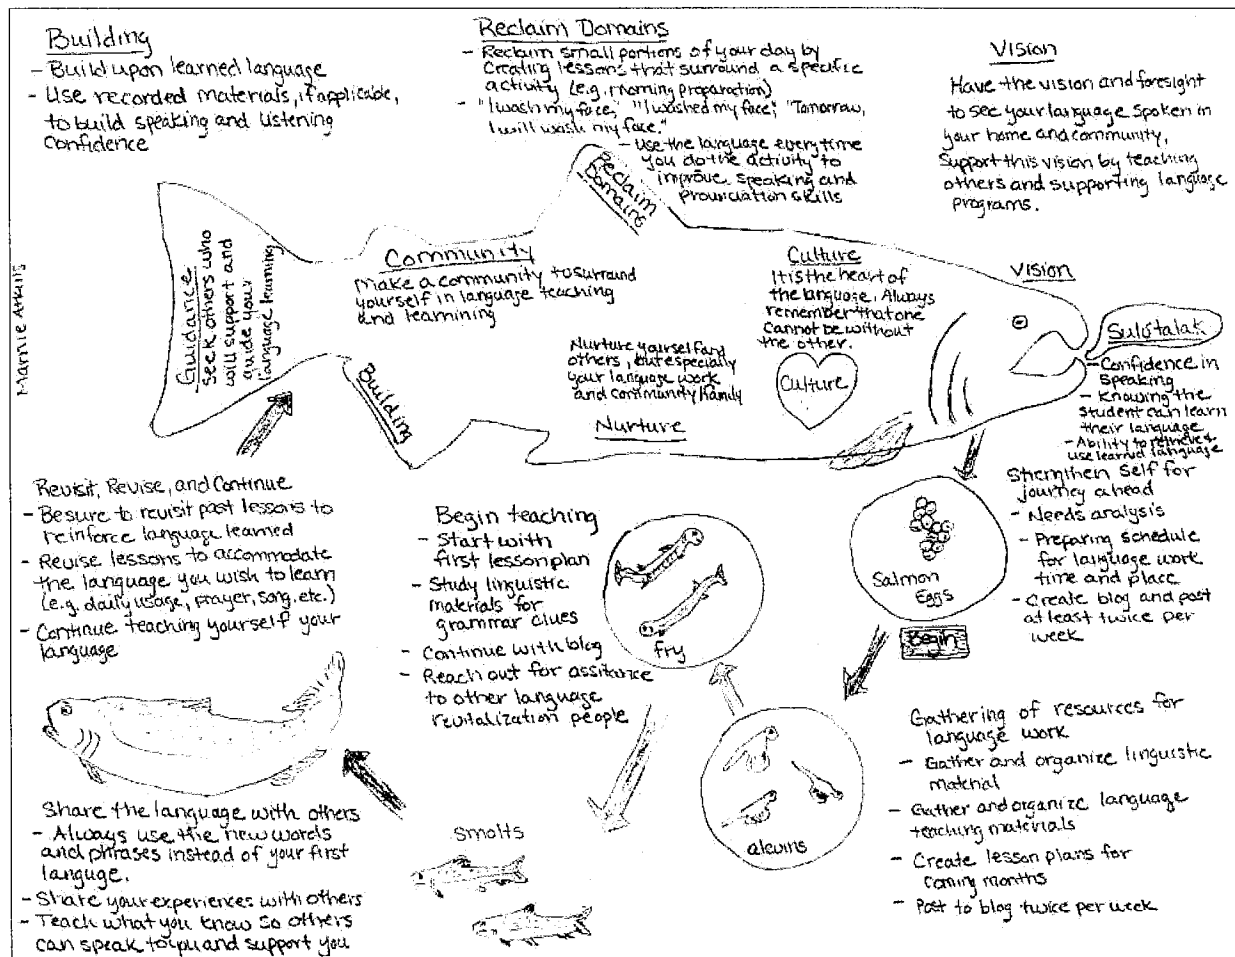 Building
- Build upon learned language
- Use recorded materials, if applicable,
to build speaking and listening
confidence
Reclaim Domains
- Reclaim small portions of your day by
creating lessons that surround a specific
activity (e.g. morning preparation)
- "I wash my face," "I washed my face," "Tomorrow,
I will wash my face."
- Use the language everytime
you do the activity to
improve speaking and
prounciation skills
Vision
Have the vision and foresight
to see your language spoken in
your home and community,
Support this vision by teaching
others and supporting language
programs.
Marnie Atkins
Guidance
Seek others who
will support and
guide your
language learning
Community
Make a community to surround
yourself in language teaching
and learnining
Reclaim
Domains
Building
Nurture yourself and
others, but especially
your language work
and community/family
Nurture
Culture
It is the heart of
the language. Always
remember that one
cannot be without
the other.
Culture
Vision
Sulutalak
- Confidence in
speaking
- Knowing the
student can learn
their language
- Ability to retrieve &
use learned language
Strengthen Self for
journey ahead
- Needs analysis
- Preparing schedule
for language work
time and place
- Create blog and post
at least twice per
week
Salmon
Eggs
Begin
Gathering of resources for
language work
- Gather and organize linguistic
material
- Gather and organize language
teaching materials
- Create lesson plans for
coming months
- Post to blog twice per week
alevins
Begin teaching
- Start with
first lesson plan
- Study linguistic
materials for
grammar clues
- Continue with blog
- Reach out for assitance
to other language
revitalization people
fry
smolts
Share the language with others
- Always use the new words
and phrases instead of your first
languge.
- Share your experiences with others
- Teach what you know so others
can speak to you and support you
Revisit, Revise, and Continue
- Be sure to revisit past lessons to
reinforce language learned
- Revise lessons to accommodate
the language you wish to learn
(e.g. daily usage, prayer, song, etc.)
- Continue teaching yourself your
language